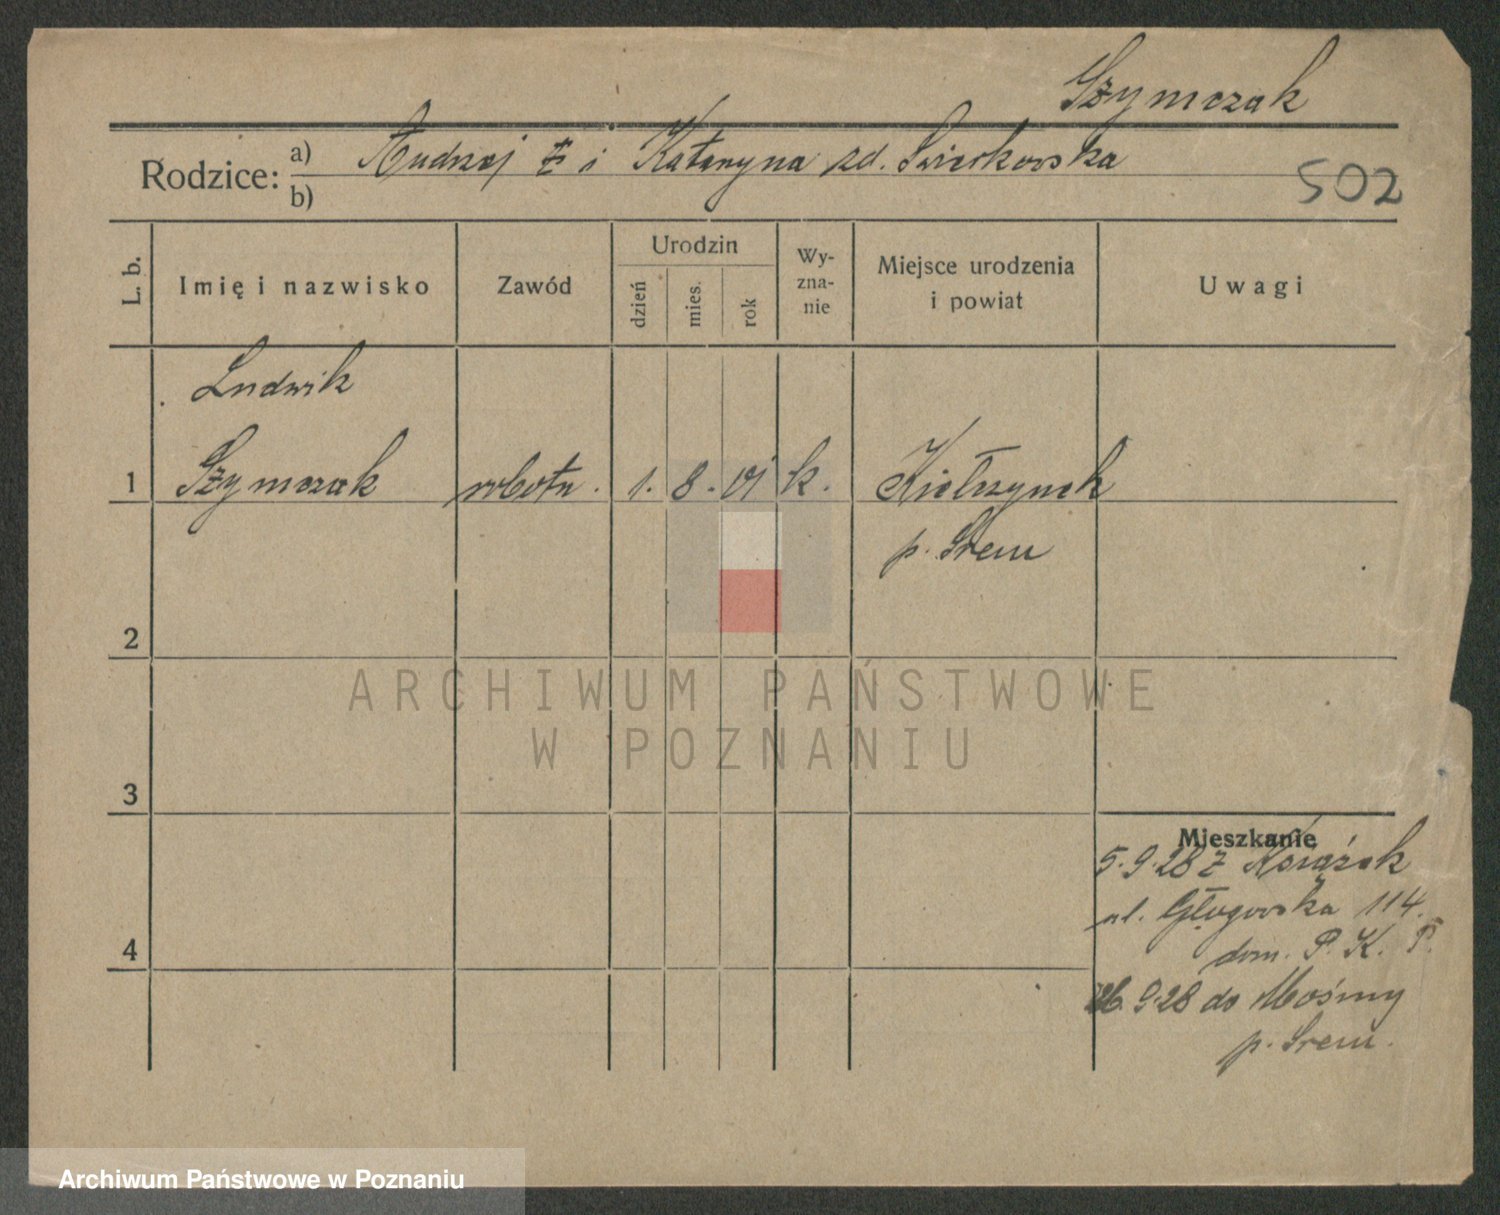 Szymczak
Rodzice: a) Andrzej i Katarzyna zd. Świerkowska
b)
502
L. b.
Imię i nazwisko
Zawód
Urodzin
dzień
mies.
rok
Wy-
zna-
nie
Miejsce urodzenia
i powiat
Uwagi
Ludwik
1 Szymczak robotn. 1. 8. 01 k. Kiełczynek
p. Śrem
2
ARCHIWUM PAŃSTWOWE
W POZNANIU
3
Mieszkanie
5.9.28 z Książek
ul. Głogowska 114.
4
dom. P. K. P.
26.9.28 do Mośiny
p. Śrem.
Archiwum Państwowe w Poznaniu